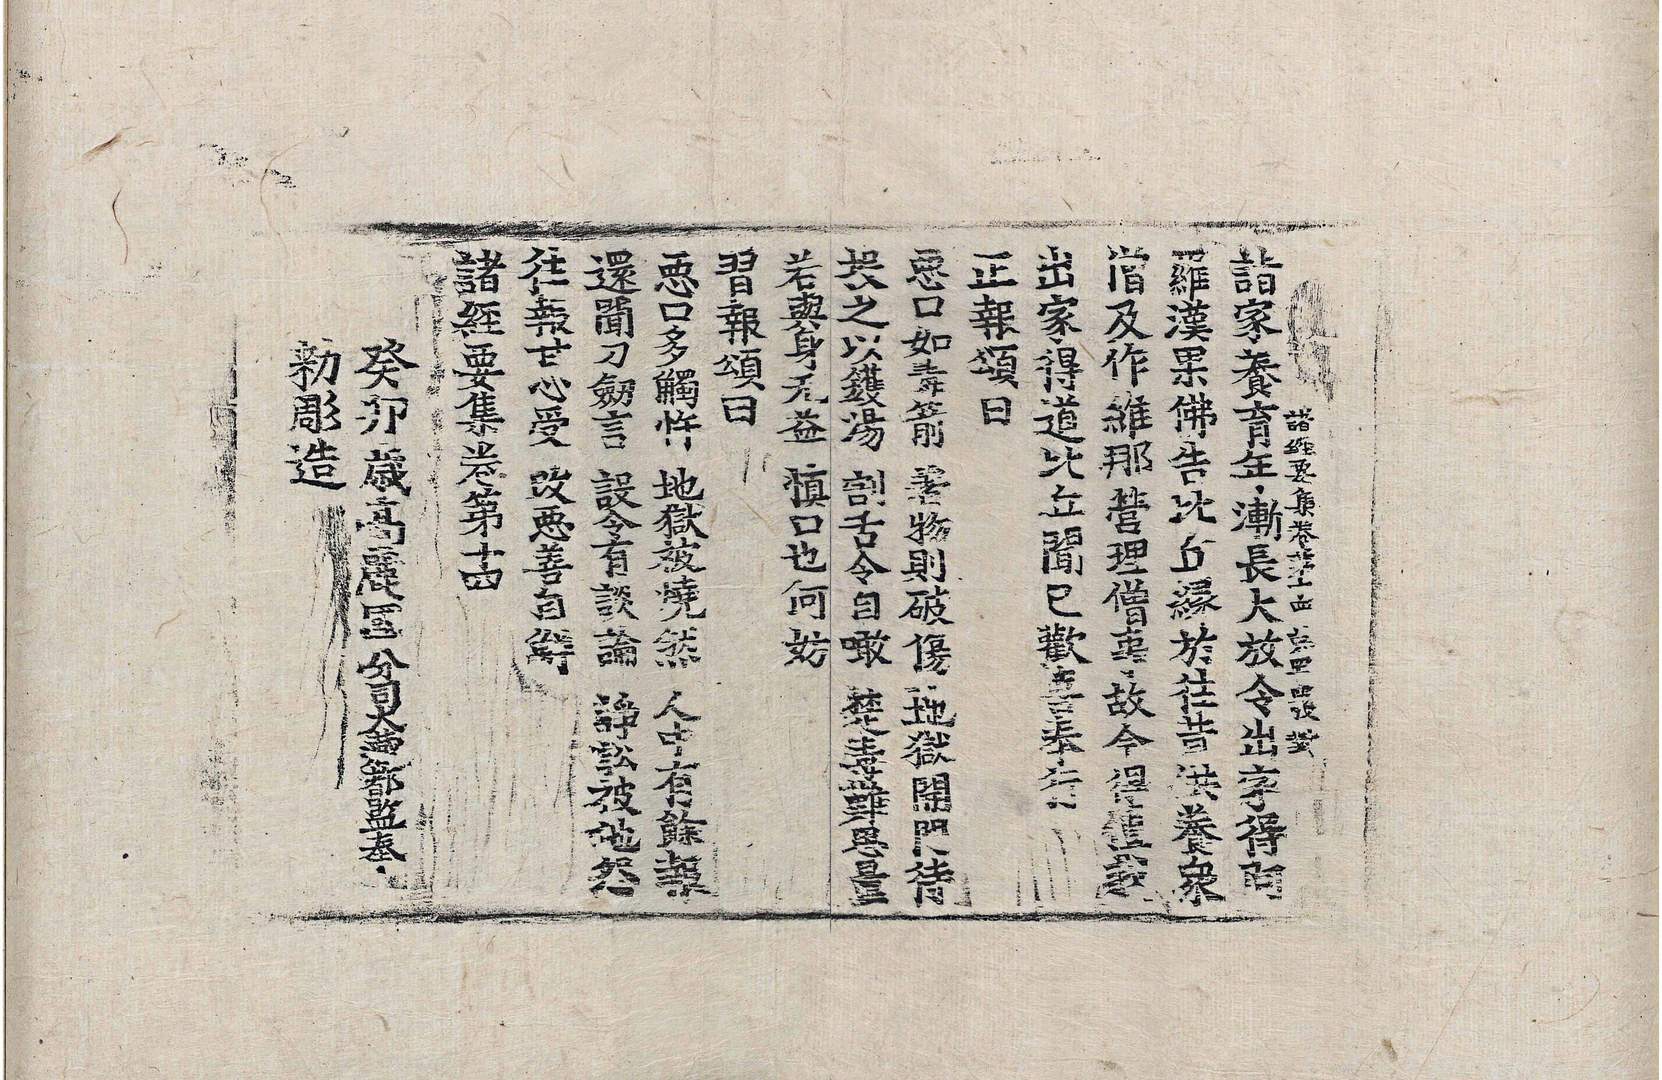 諸經要集卷第十四
詣家養育年漸長大放令出家得阿
羅漢果佛告比丘緣於往昔供養眾
僧及作維那營理僧事故今得值我
出家得道比丘聞已歡喜奉行
正報頌曰
惡口如毒箭 著物則破傷 地獄開門待
投之以鑊湯 割舌令自噉 楚毒難思量
若與身无益 慎口也何妨
習報頌曰
惡口多觸忤 地獄被燒然 人中有餘報
還聞刀劒言 設令有談論 諍訟被他怨
往報甘心受 改惡善自鮮
諸經要集卷第十四
癸卯歲高麗國分司大藏都監奉
勑彫造